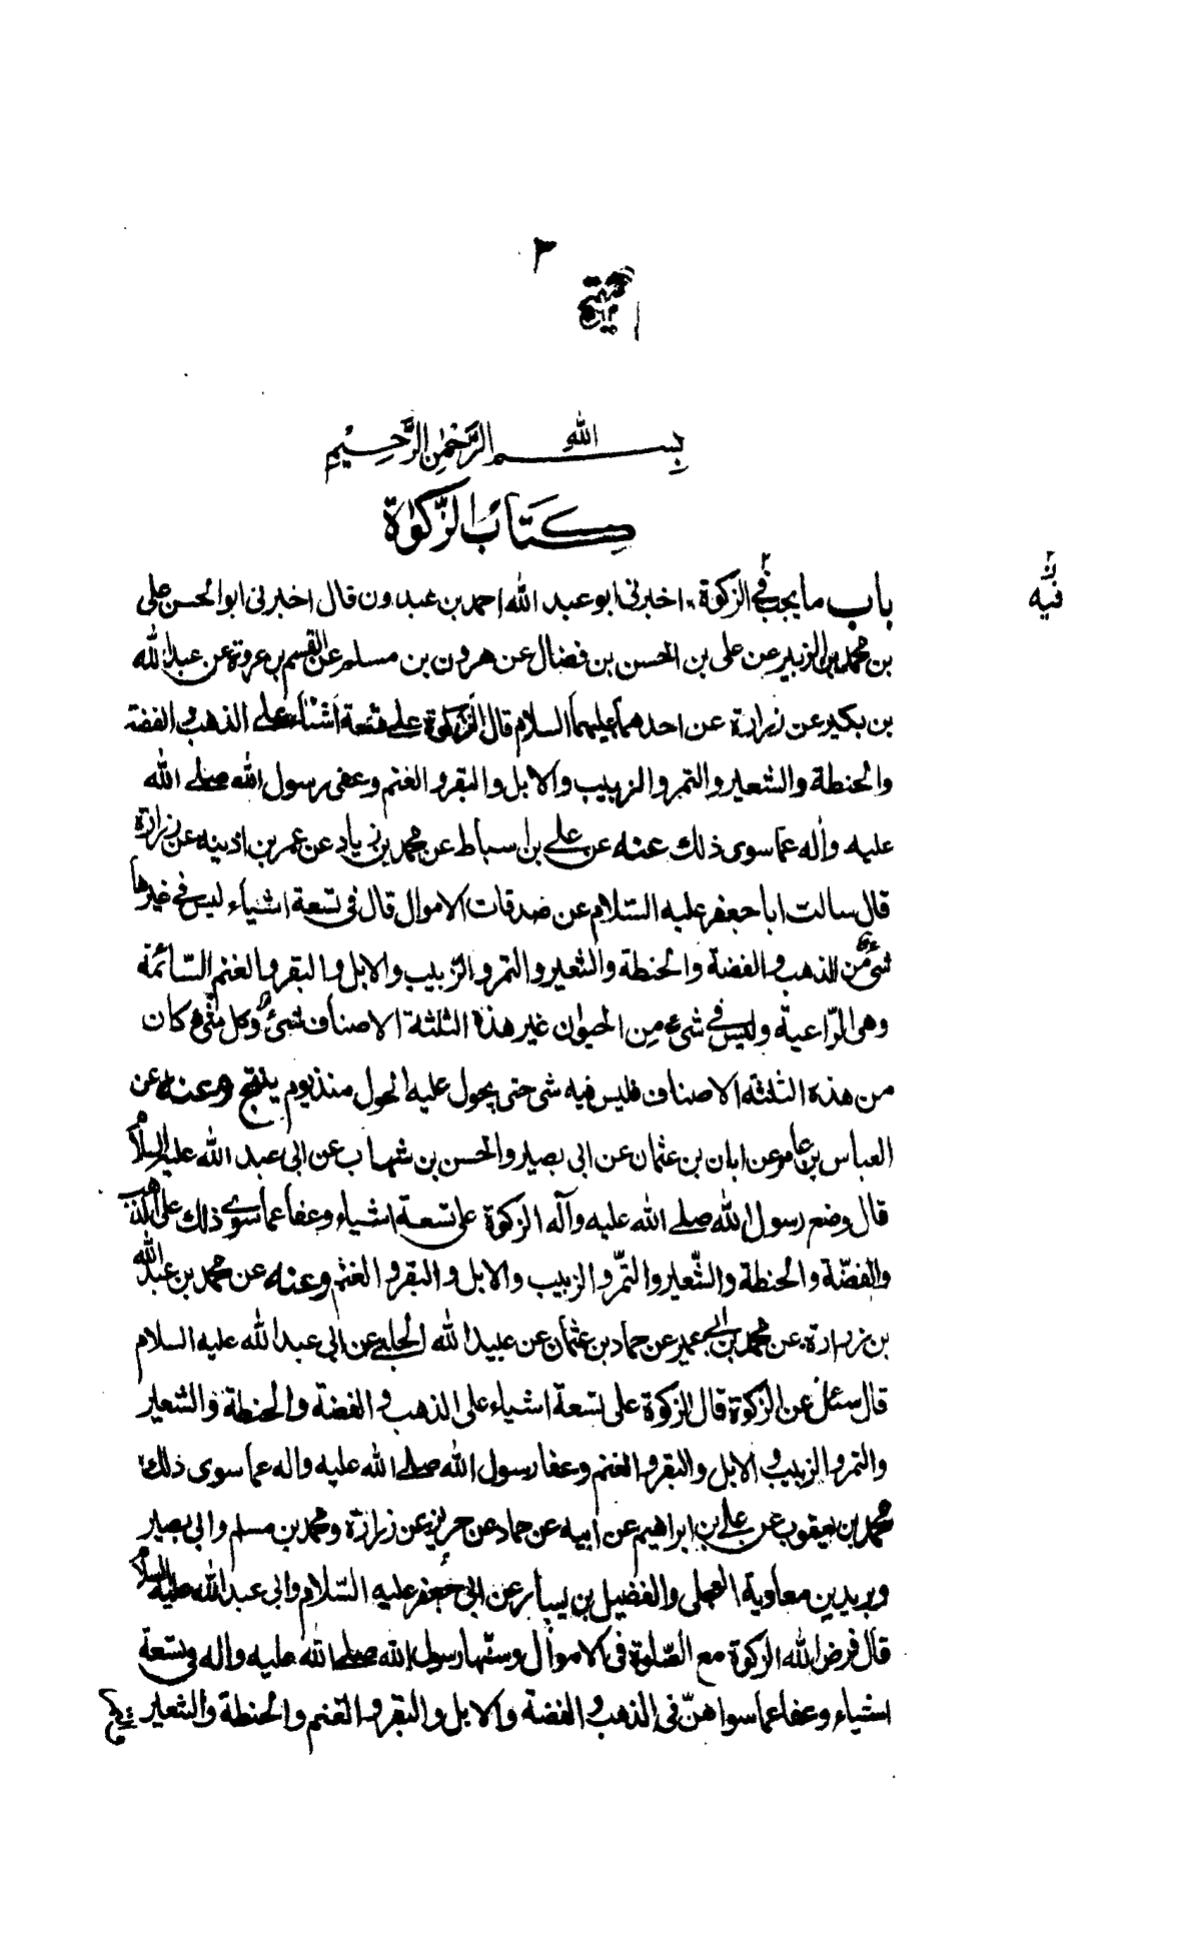 ٢
بسم الله الرَّحمٰنِ الرَّحِيْمِ
كِتَابُ الزَّكوٰة
باب ما يجب فى الزكوة، اخبرنى ابو عبد الله احمد بن عبدون قال اخبرنى ابو الحسن على
فيه
بن محمد بن الزبير عن على بن الحسن بن فضال عن هرون بن مسلم عن القسم بن عروة عن عبد الله
بن بكير عن زرارة عن احدهما عليهما السلام قال الزكوة على تسعة اشياء على الذهب و الفضة
والحنطة والشعير والتمر والزبيب والابل والبقر والغنم وعفى رسول الله صلى الله
عليه وآله عما سوى ذلك عنه عن على بن اسباط عن محمد بن زياد عن عمر بن اذينه عن زرارة
قال سالت ابا جعفر عليه السّلام عن صدقات الاموال قال فى تسعة اشياء ليس فى غيرها
شئ من الذهب و الفضة والحنطة والشعير والتمر والزبيب والابل والبقر والغنم السّائمة
وهى الرّاعية وليس فى شىء مِن الحيوان غير هذه الثلثة الاصناف شئ وكل شئ كان
من هذه الثلثة الاصناف فليس فيه شى حتى يحول عليه الحول منذ يوم ينتج وعنه عن
العباس بن عامر عن ابان بن عثمان عن ابى بصير والحسن بن شهاب عن ابى عبد الله عليه السلام
قال وضع رسول الله صلى الله عليه وآله الزكوة على تسعة اشياء وعفا عما سوى ذلك على الذهب
والفضّة والحنطة والشّعير والتمّر والزبيب والابل والبقر والغنم وعنه عن محمد بن عبد الله
بن زرارة عن محمد بن ابى عمير عن حماد بن عثمان عن عبيد الله الحلبى عن ابى عبد الله عليه السلام
قال سئل عن الزكوة قال الزكوة على تسعة اشياء على الذهب و الفضة والحنطة والشعير
والتمر والزبيب والابل والبقر والغنم وعفا رسول الله صلى الله عليه واله عما سوى ذلك
محمد بن يعقوب عن على بن ابراهيم عن أبيه عن حماد عن حريز عن زرارة ومحمد بن مسلم وابى بصير
وبريد بن معاوية العجلى والفضيل بن يسار عن ابى جعفر عليه السّلام وابى عبد الله عليه السلام
قال فرض الله الزكوة مع الصّلوة فى الاموال وسنّها رسول الله صلى الله عليه واله فى تسعة
اشياء وعفا عما سواهنّ فى الذهب و الفضة والابل والبقر والغنم والحنطة والشعير